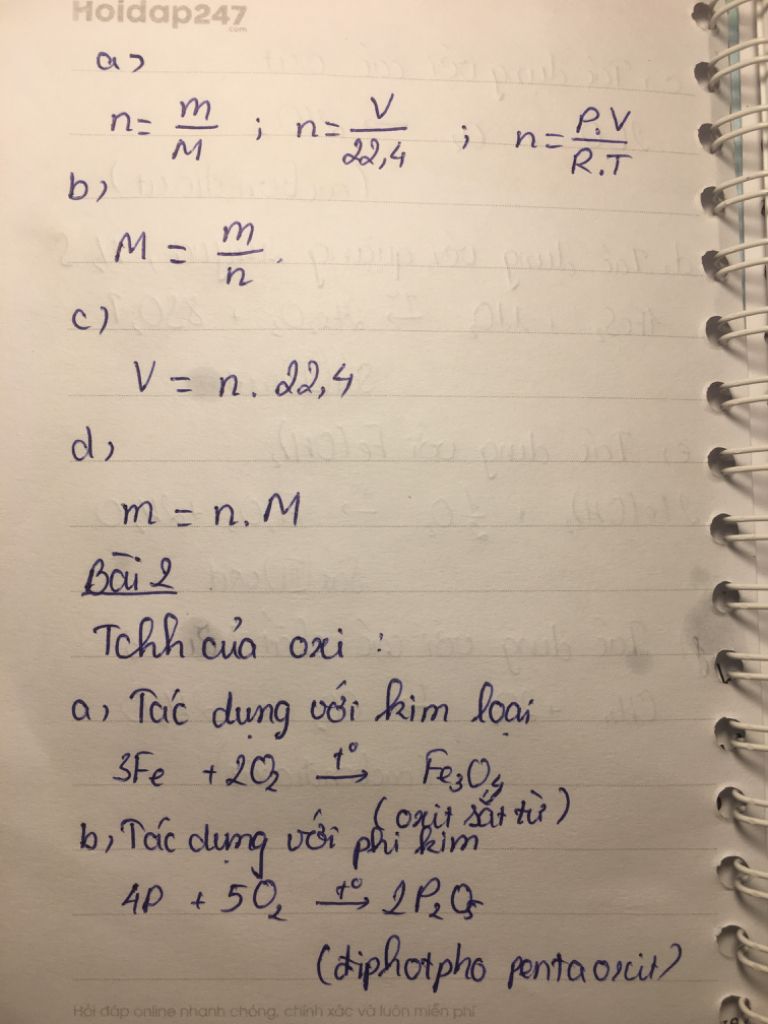 Hoidap247
.com
a)
n = m/M ; n = V/22,4 ; n = P.V/R.T
b)
M = m/n.
c)
V = n. 22,4
d)
m = n. M
Bài 2
Tchh của oxi :
a, Tác dụng với kim loại
3Fe + 2O2 t° → Fe3O4
(oxit sắt từ)
b, Tác dụng với phi kim
4P + 5O2 t° → 2P2O5
(điphotpho pentaoxit)
Hỏi đáp online nhanh chóng, chính xác và luôn miễn phí